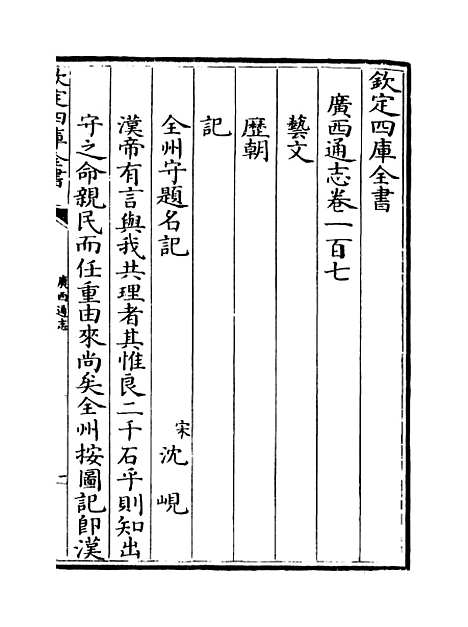 欽定四庫全書
廣西通志卷一百七
藝文
歴朝
記
全州守題名記 宋 沈峴
漢帝有言與我共理者其惟良二千石乎則知出
守之命親民而任重由來尚矣全州按圖記即漢
欽定四庫全書
廣西通志